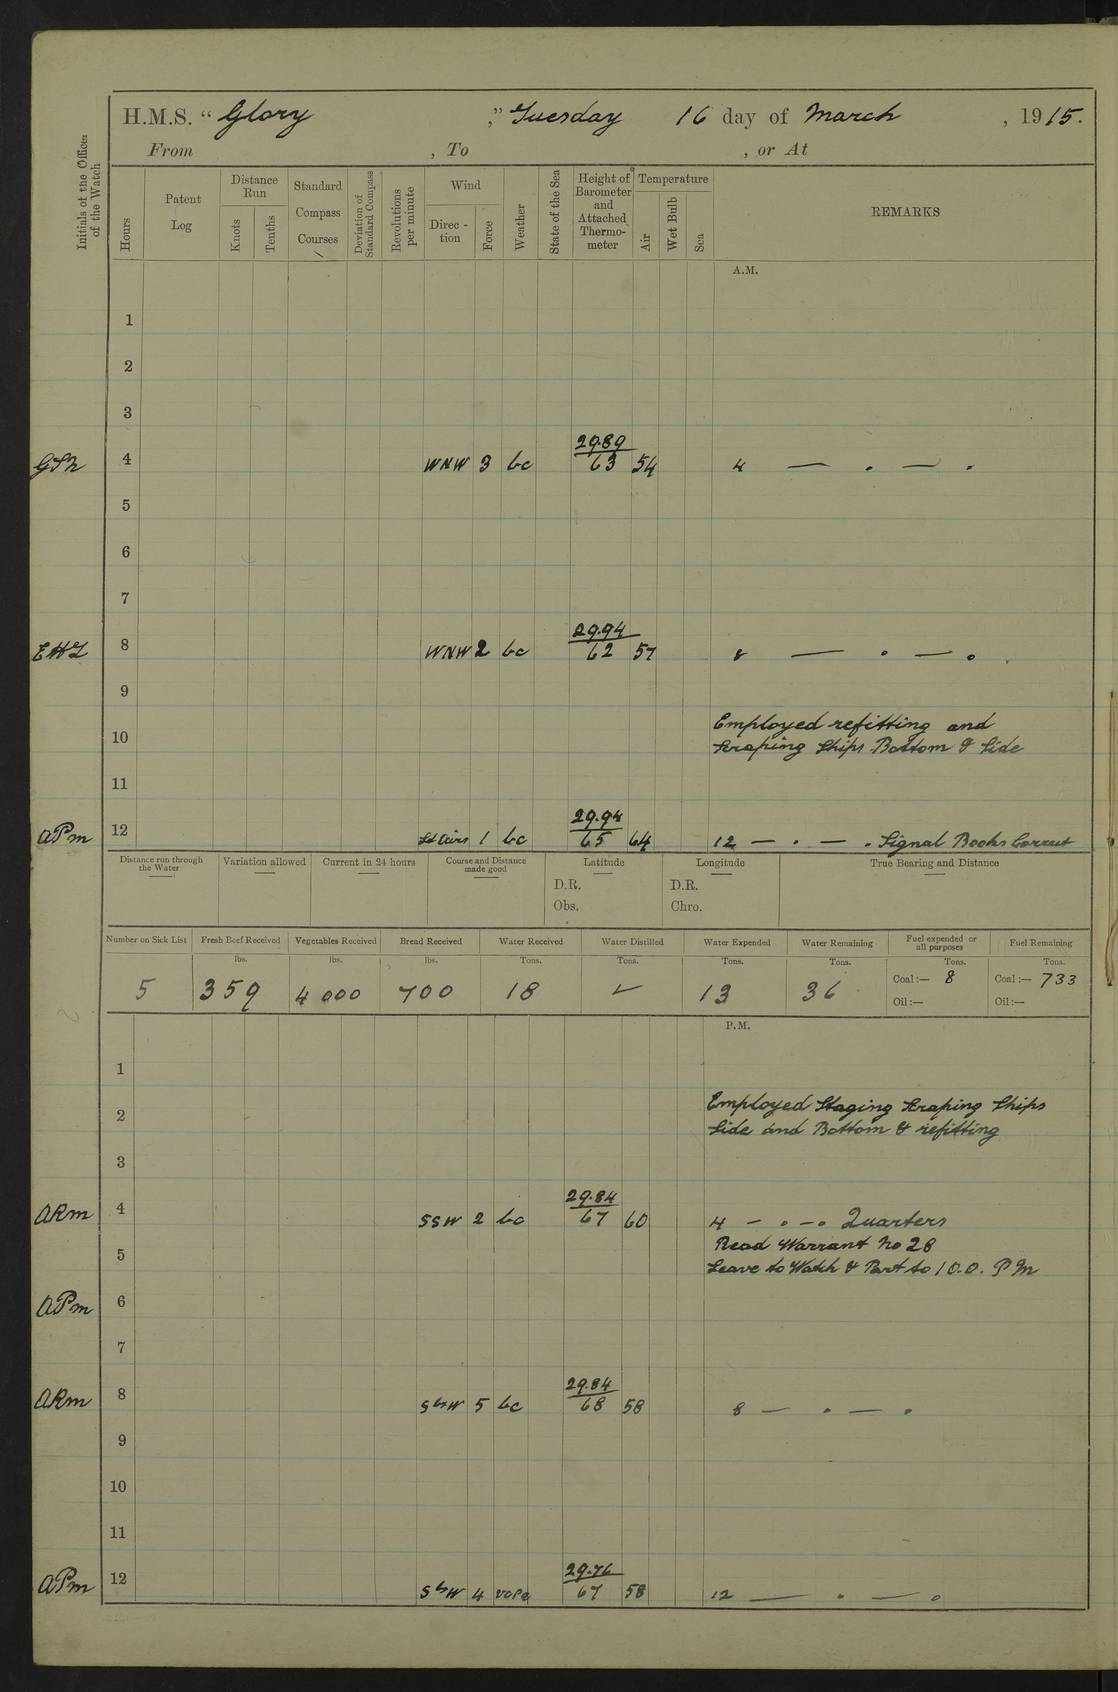 H.M.S. “ Glory ,” Tuesday 16 day of March , 1915.
From , To , or At
Initials of the Officer of the Watch
Hours
Patent Log
Distance Run
Knots
Tenths
Standard Compass Courses
Deviation of Standard Compass
Revolutions per minute
Wind
Direc-tion
Force
Weather
State of the Sea
Height of Barometer and Attached Thermo-meter
Temperature
Air
Wet Bulb
Sea
REMARKS
A.M.
1
2
3
29.89
4 WNW 3 bc 63 54 4 — . — .
5
6
7
29.94
EHL 8 WNW 2 bc 62 57 8 — . — .
9
Employed refitting and
10 Scraping Ships Bottom & Side
11
29.94
APm 12 Lt airs 1 bc 65 64 12 — . — . Signal Books Correct
Distance run through the Water
Variation allowed
Current in 24 hours
Course and Distance made good
Latitude
D.R.
Obs.
Longitude
D.R.
Chro.
True Bearing and Distance
Number on Sick List
5
Fresh Beef Received
lbs.
359
Vegetables Received
lbs.
4000
Bread Received
lbs.
700
Water Received
Tons.
18
Water Distilled
Tons.
Water Expended
Tons.
13
Water Remaining
Tons.
36
Fuel expended or all purposes
Tons.
Coal :— 8
Oil :—
Fuel Remaining
Tons.
Coal :— 733
Oil :—
P.M.
1
Employed Staging Scraping Ships
2 Side and Bottom & refitting
3
29.84
ARm 4 SSW 2 bc 67 60 4 — . — . Quarters
Read Warrant No 28
5 Leave to Watch & Part to 10.0. PM
APm 6
7
29.84
ARm 8 SbW 5 bc 68 58 8 — . — .
9
10
11
29.76
APm 12 SbW 4 67 58 12 — . — .